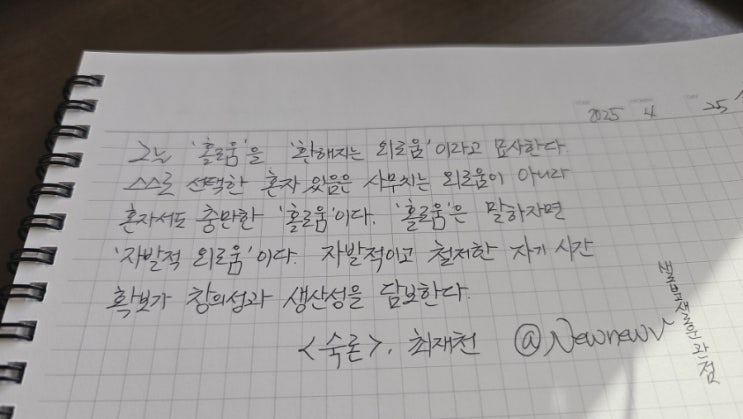 2025 4 25
그는 '홀로움'을 '환해지는 외로움'이라고 묘사한다.
스스로 선택한 혼자 있음은 사무치는 외로움이 아니라
혼자서도 충만한 '홀로움'이다. '홀로움'은 말하자면
'자발적 외로움'이다. 자발적이고 철저한 자기 시간
확보가 창의성과 생산성을 담보한다.
<숙론>. 최재천 @Newnewv
새로운 관점